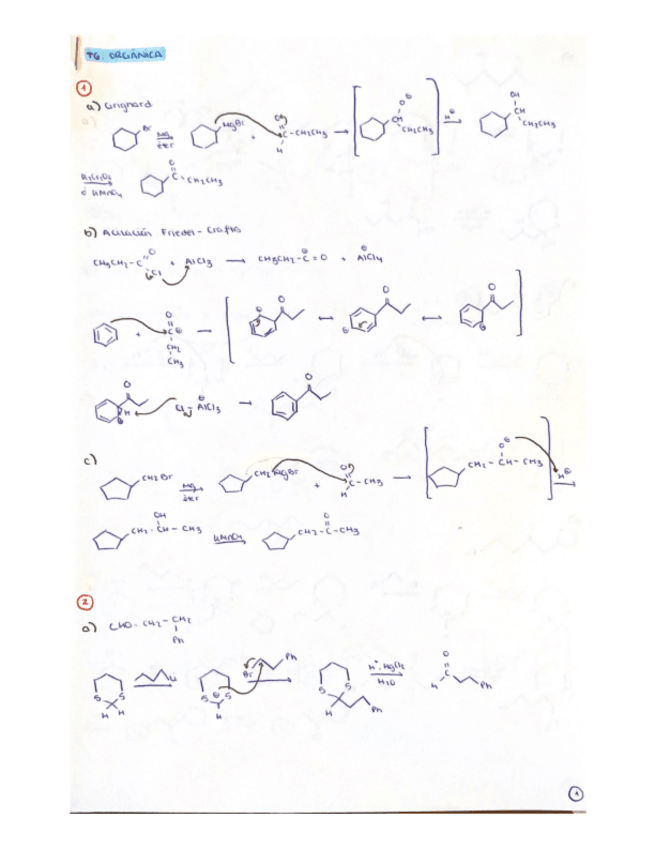 T6. ORGÁNICA
1
a) Grignard
Br Mg éter MgBr + O C-CH2CH3 H O⊖ CH CH2CH3 H⊕ OH CH CH2CH3
H2CrO4 ó KMnO4 O C CH2CH3
b) Acilación Friedel-Crafts
CH3CH2-C O Cl + AlCl3 → CH3CH2-C⊕=O + AlCl4⊖
+ O C⊕ CH2 CH3 O O O
O H Cl-AlCl3⊖ → O
c)
CH2Br Mg éter CH2MgBr + O C-CH3 H → CH2-CH-CH3 O⊖ H⊕
CH2-CH-CH3 OH KMnO4 CH2-C-CH3 O
2
a) CHO-CH2-CH2
Ph
S S H H Li S S ⊖ H Br Ph S S H Ph H+, HgCl2 H2O O H C Ph
1